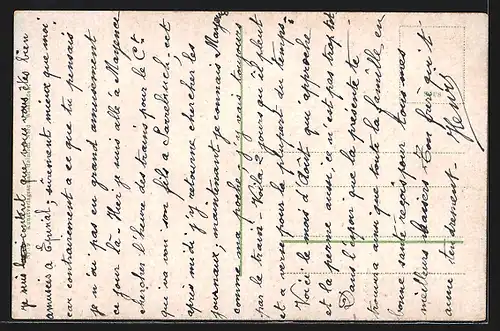 je suis content que vous vous êtes bien
amusées à Epinal, sûrement mieux que moi
car contrairement a ce que tu pensais
je n'ai pas eu grand amusement
ce jour là. Hier je suis allé à Mayence
chercher l'heure des trains pour le Ct
qui va voir son fils a Sarrebruck; cet
après midi j'y retourne chercher les
journaux; maintenant je connais Mayence
comme ma poche, j'y vais toujours
par le train. Voilà 2 jours qu'il pleut
et vente pour la plupart du temps,
Voici le mois d'Août qui approche
et la perme aussi, ce n'est pas trop tôt
Dans l'espoir que la présente te
trouvera ainsi que toute la famille en
bonne santé reçois pour tous mes
meilleurs baisers Ton frère qui t'
aime tendrement.
Henri